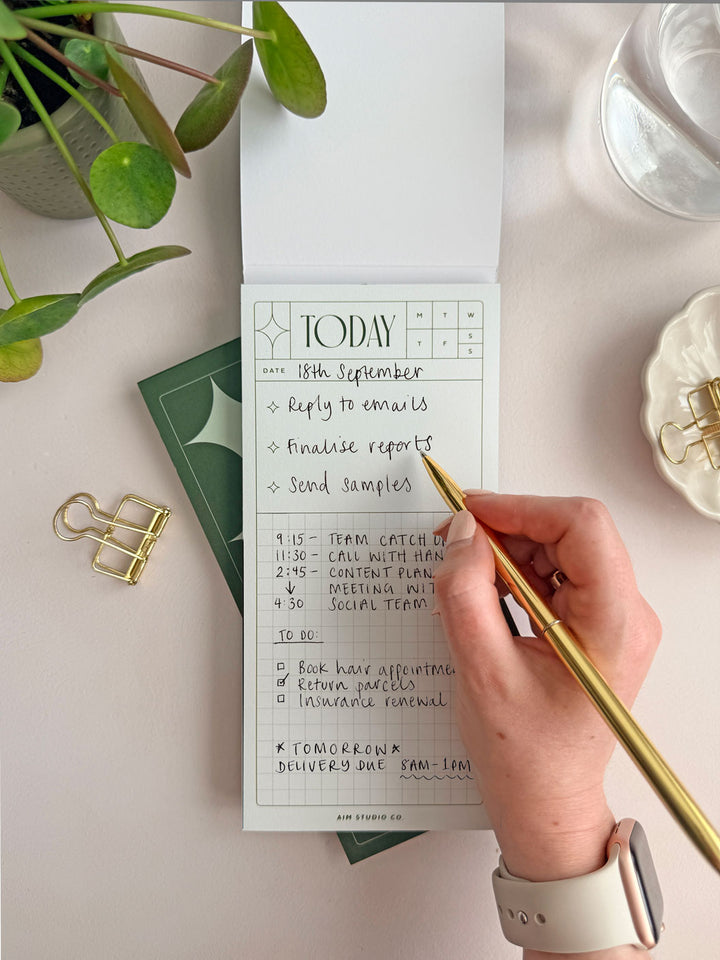 TODAY
M T W
T F S
S
DATE 18th September
Reply to emails
Finalise reports
Send samples
9:15 - TEAM CATCH
11:30 - CALL WITH
2:45 - CONTENT
↓ MEETING
4:30 SOCIAL TEAM
TO DO:
Book hair
Return parcels
Insurance renewal
* TOMORROW *
DELIVERY DUE 8AM-1PM
AIM STUDIO CO.